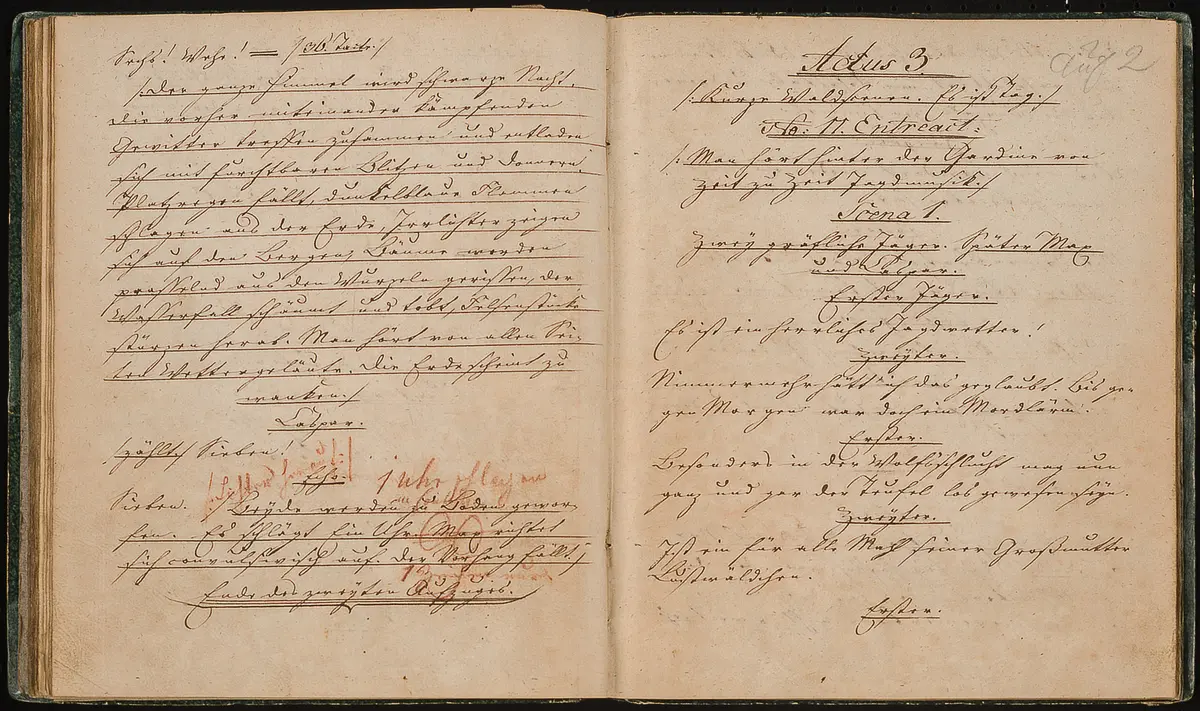 Sechs! Wehe! = /:36. Takte:/
/:Der ganze Himmel wird schwarze Nacht,
die vorher miteinander kämpfenden
Gewitter treffen zusammen und entladen
sich mit furchtbaren Blitzen und Donnern.
Platzregen fällt, dunkelblaue Flammen
schlagen aus der Erde Irrlichter zeigen
sich auf den Bergen, Bäume werden
prasselnd aus den Wurzeln gerissen, der
Wasserfall schäumt und tobt, Felsenstücke
stürzen herab. Man hört von allen Sei-
ten Wettergeläute. Die Erde scheint zu
wanken:/
Caspar.
/:zählt:/ Sieben!
Echo.
1 Uhr schlagen
Sieben. /: Beyde werden zu Boden gewor-
fen. Es schlägt Ein Uhr. Max richtet
sich convulsivisch auf. Der Vorhang fällt:/
Ende des zweyten Aufzuges.
Actus 3.
2
/:Kurze Waldscenen. Es ist Tag:/
No: 11. Entreact:
/:Man hört hinter der Gardine von
Zeit zu Zeit Jagdmusik:/
Scena 1.
Zwey gräfliche Jäger. Später Max
und Caspar.
Erster Jäger.
Es ist ein herrliches Jagdwetter!
Zweyter.
Nimmermehr hätt' ich das geglaubt. Bis ge-
gen Morgen war doch ein Mordlärm.
Erster.
Besonders in der Wolfsschlucht mag nun
ganz und gar der Teufel los gewesen seyn.
Zweyter.
Ist ein für alle Mahl seiner Großmutter
Lustwäldchen.
Erster.